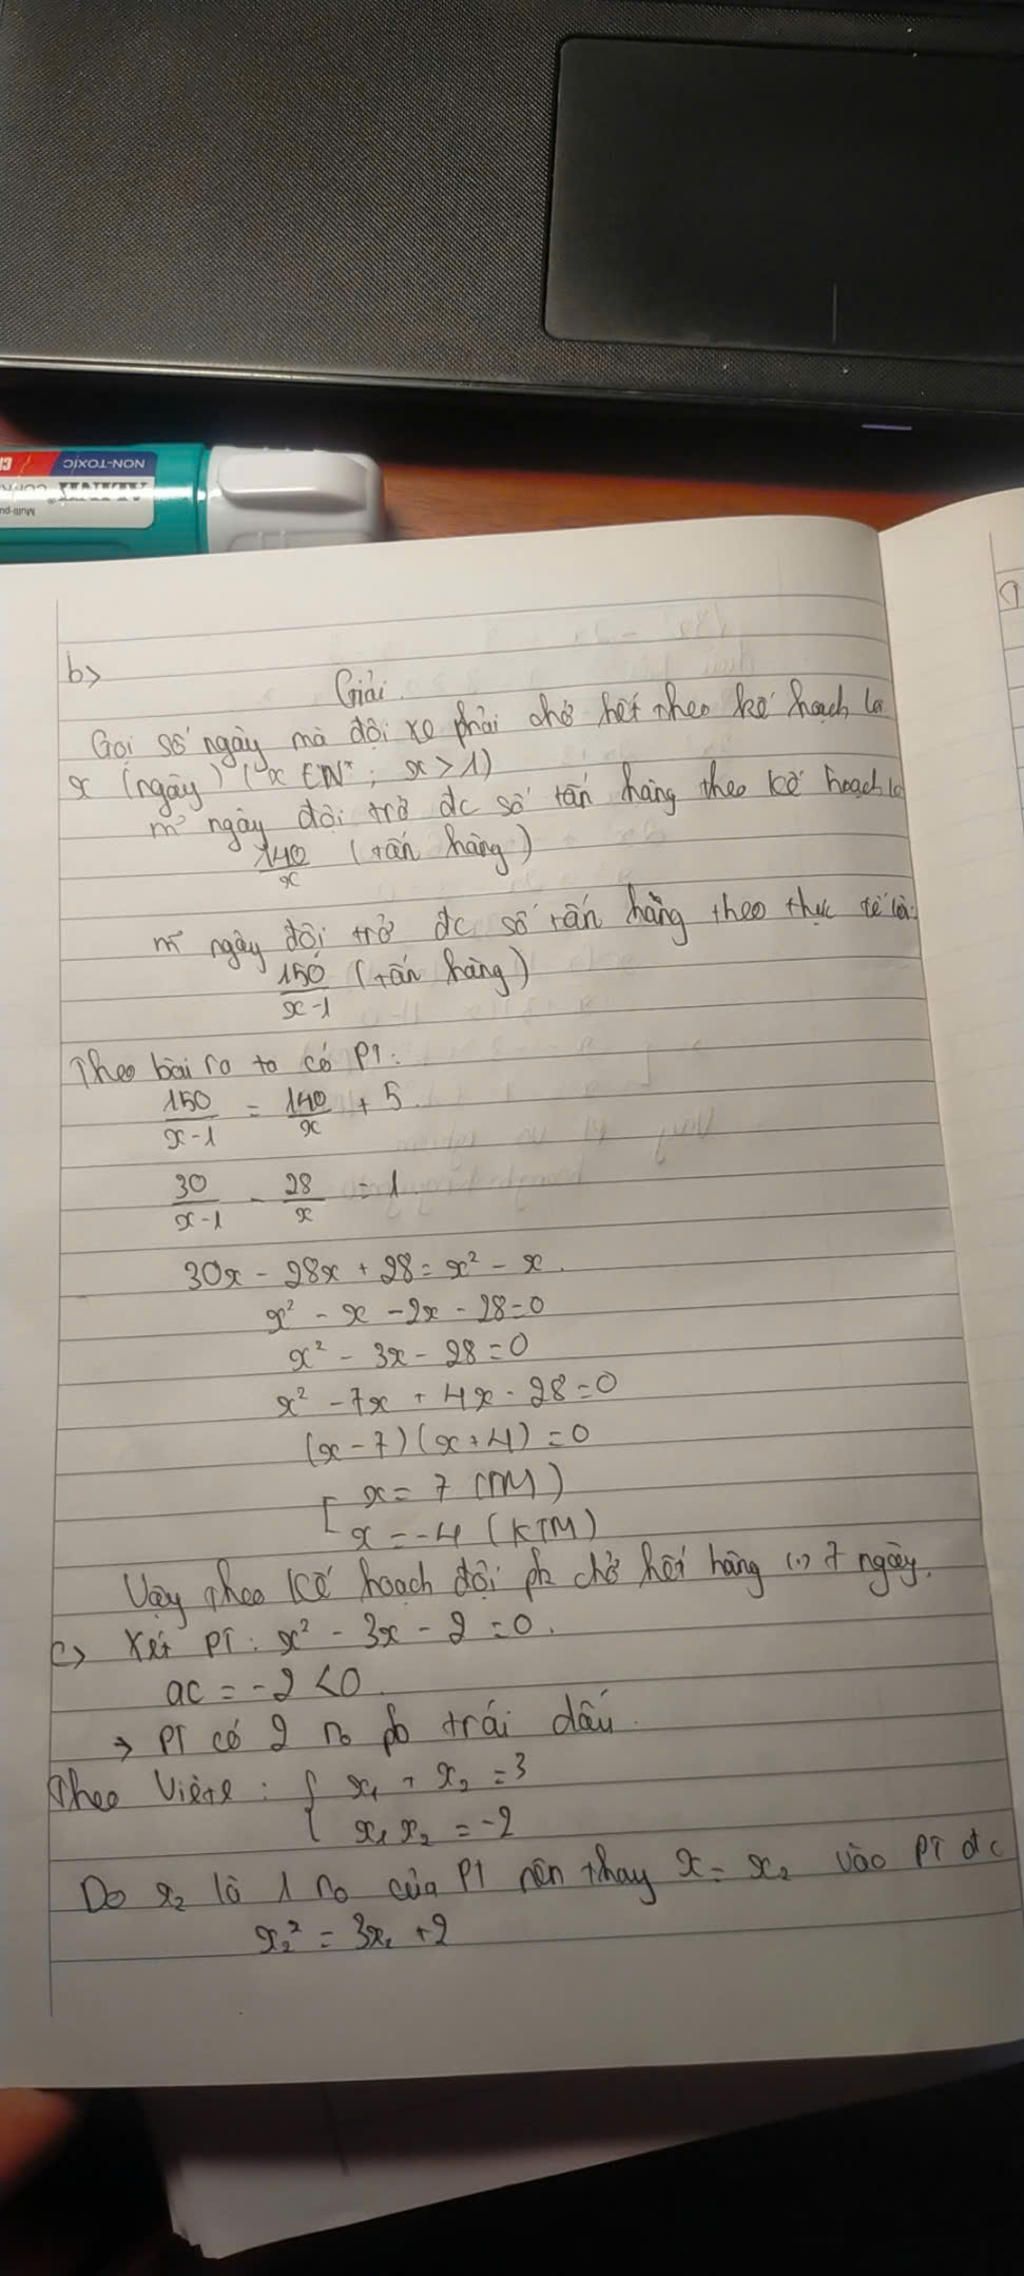 NON-TOXIC
Multi-pu
b>
Giải.
Gọi số ngày mà đội xe phải chở hết theo kế hoạch là
x (ngày) (x ∈ N*; x > 1)
mỗi ngày đội trở đc số tấn hàng theo kế hoạch là
140/x (tấn hàng)
mỗi ngày đội trở đc số tấn hàng theo thực tế là:
150/(x-1) (tấn hàng)
Theo bài ra ta có PT:
150/(x-1) = 140/x + 5.
30/(x-1) - 28/x = 1
30x - 28x + 28 = x² - x.
x² - x - 2x - 28 = 0
x² - 3x - 28 = 0
x² - 7x + 4x - 28 = 0
(x - 7)(x + 4) = 0
[ x = 7 (TM)
x = -4 (KTM)
Vậy theo kế hoạch đội ph chở hết hàng (.) 7 ngày.
c> Xét PT: x² - 3x - 2 = 0.
ac = -2 < 0.
→ PT có 2 no pb trái dấu.
Theo Viète: { x₁ + x₂ = 3
x₁ x₂ = -2
Do x₂ là 1 no của PT nên thay x = x₂ vào PT đc
x₂² = 3x₂ + 2